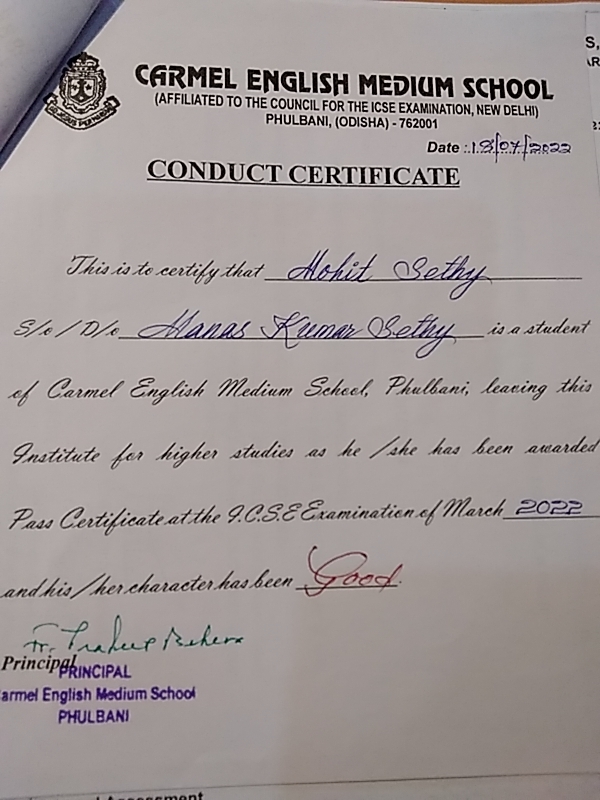 CARMEL ENGLISH MEDIUM SCHOOL
(AFFILIATED TO THE COUNCIL FOR THE ICSE EXAMINATION, NEW DELHI)
PHULBANI, (ODISHA) - 762001
Date :.18/07/2022
CONDUCT CERTIFICATE
This is to certify that Mohit Sethy
S/o / D/o Manas Kumar Sethy is a student
of Carmel English Medium School, Phulbani, leaving this
Institute for higher studies as he / she has been awarded
Pass Certificate at the I.C.S.E Examination of March 2022
and his / her character has been Good.
Fr. Pradeep Behera
Principal
PRINCIPAL
armel English Medium School
PHULBANI